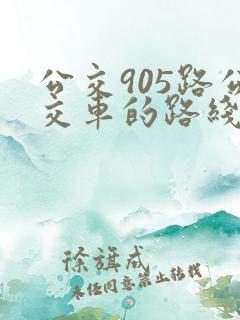 公交905路公
交车的路线
徐旗成
未经同意禁止转载